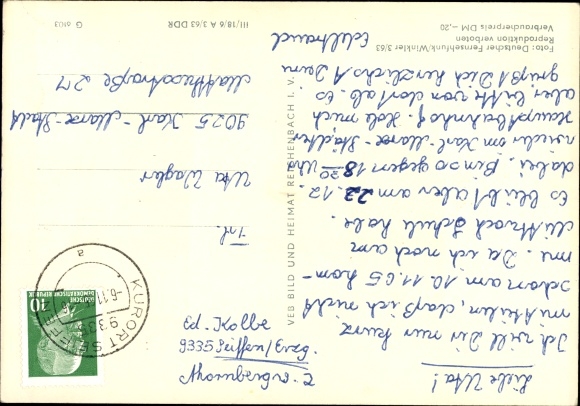 Liebe Uta!
Ich will Dir nur kurz
mitteilen, daß ich nicht
schon am 10.11.65 kom-
me. Da ich noch am
Mittwoch Schule habe.
Es bleibt aber am 22.12.
dabei. Bin so gegen 18 20 Uhr
wieder am Karl-Marx-Städter
Hauptbahnhof. Hole mich
aber bitte von dort ab. Es
grüßt Dich herzlichst Deine
Edeltraud
Foto: Deutscher Fernsehfunk/Winkler 3/63
Reproduktion verboten
Verbraucherpreis DM -,20
VEB BILD UND HEIMAT REICHENBACH I. V.
III/18/6 A 3/63 DDR
G 6103
Ed. Kolbe
9335 Seiffen/Erzg.
Ahornbergweg 2
KURORT SEIFFEN
9335
-6.11.65
a
40
DEUTSCHE
DEMOKRATISCHE REPUBLIK
Frl.
Uta Wagler
9025 Karl-Marx-Stadt
Matthesstraße 27